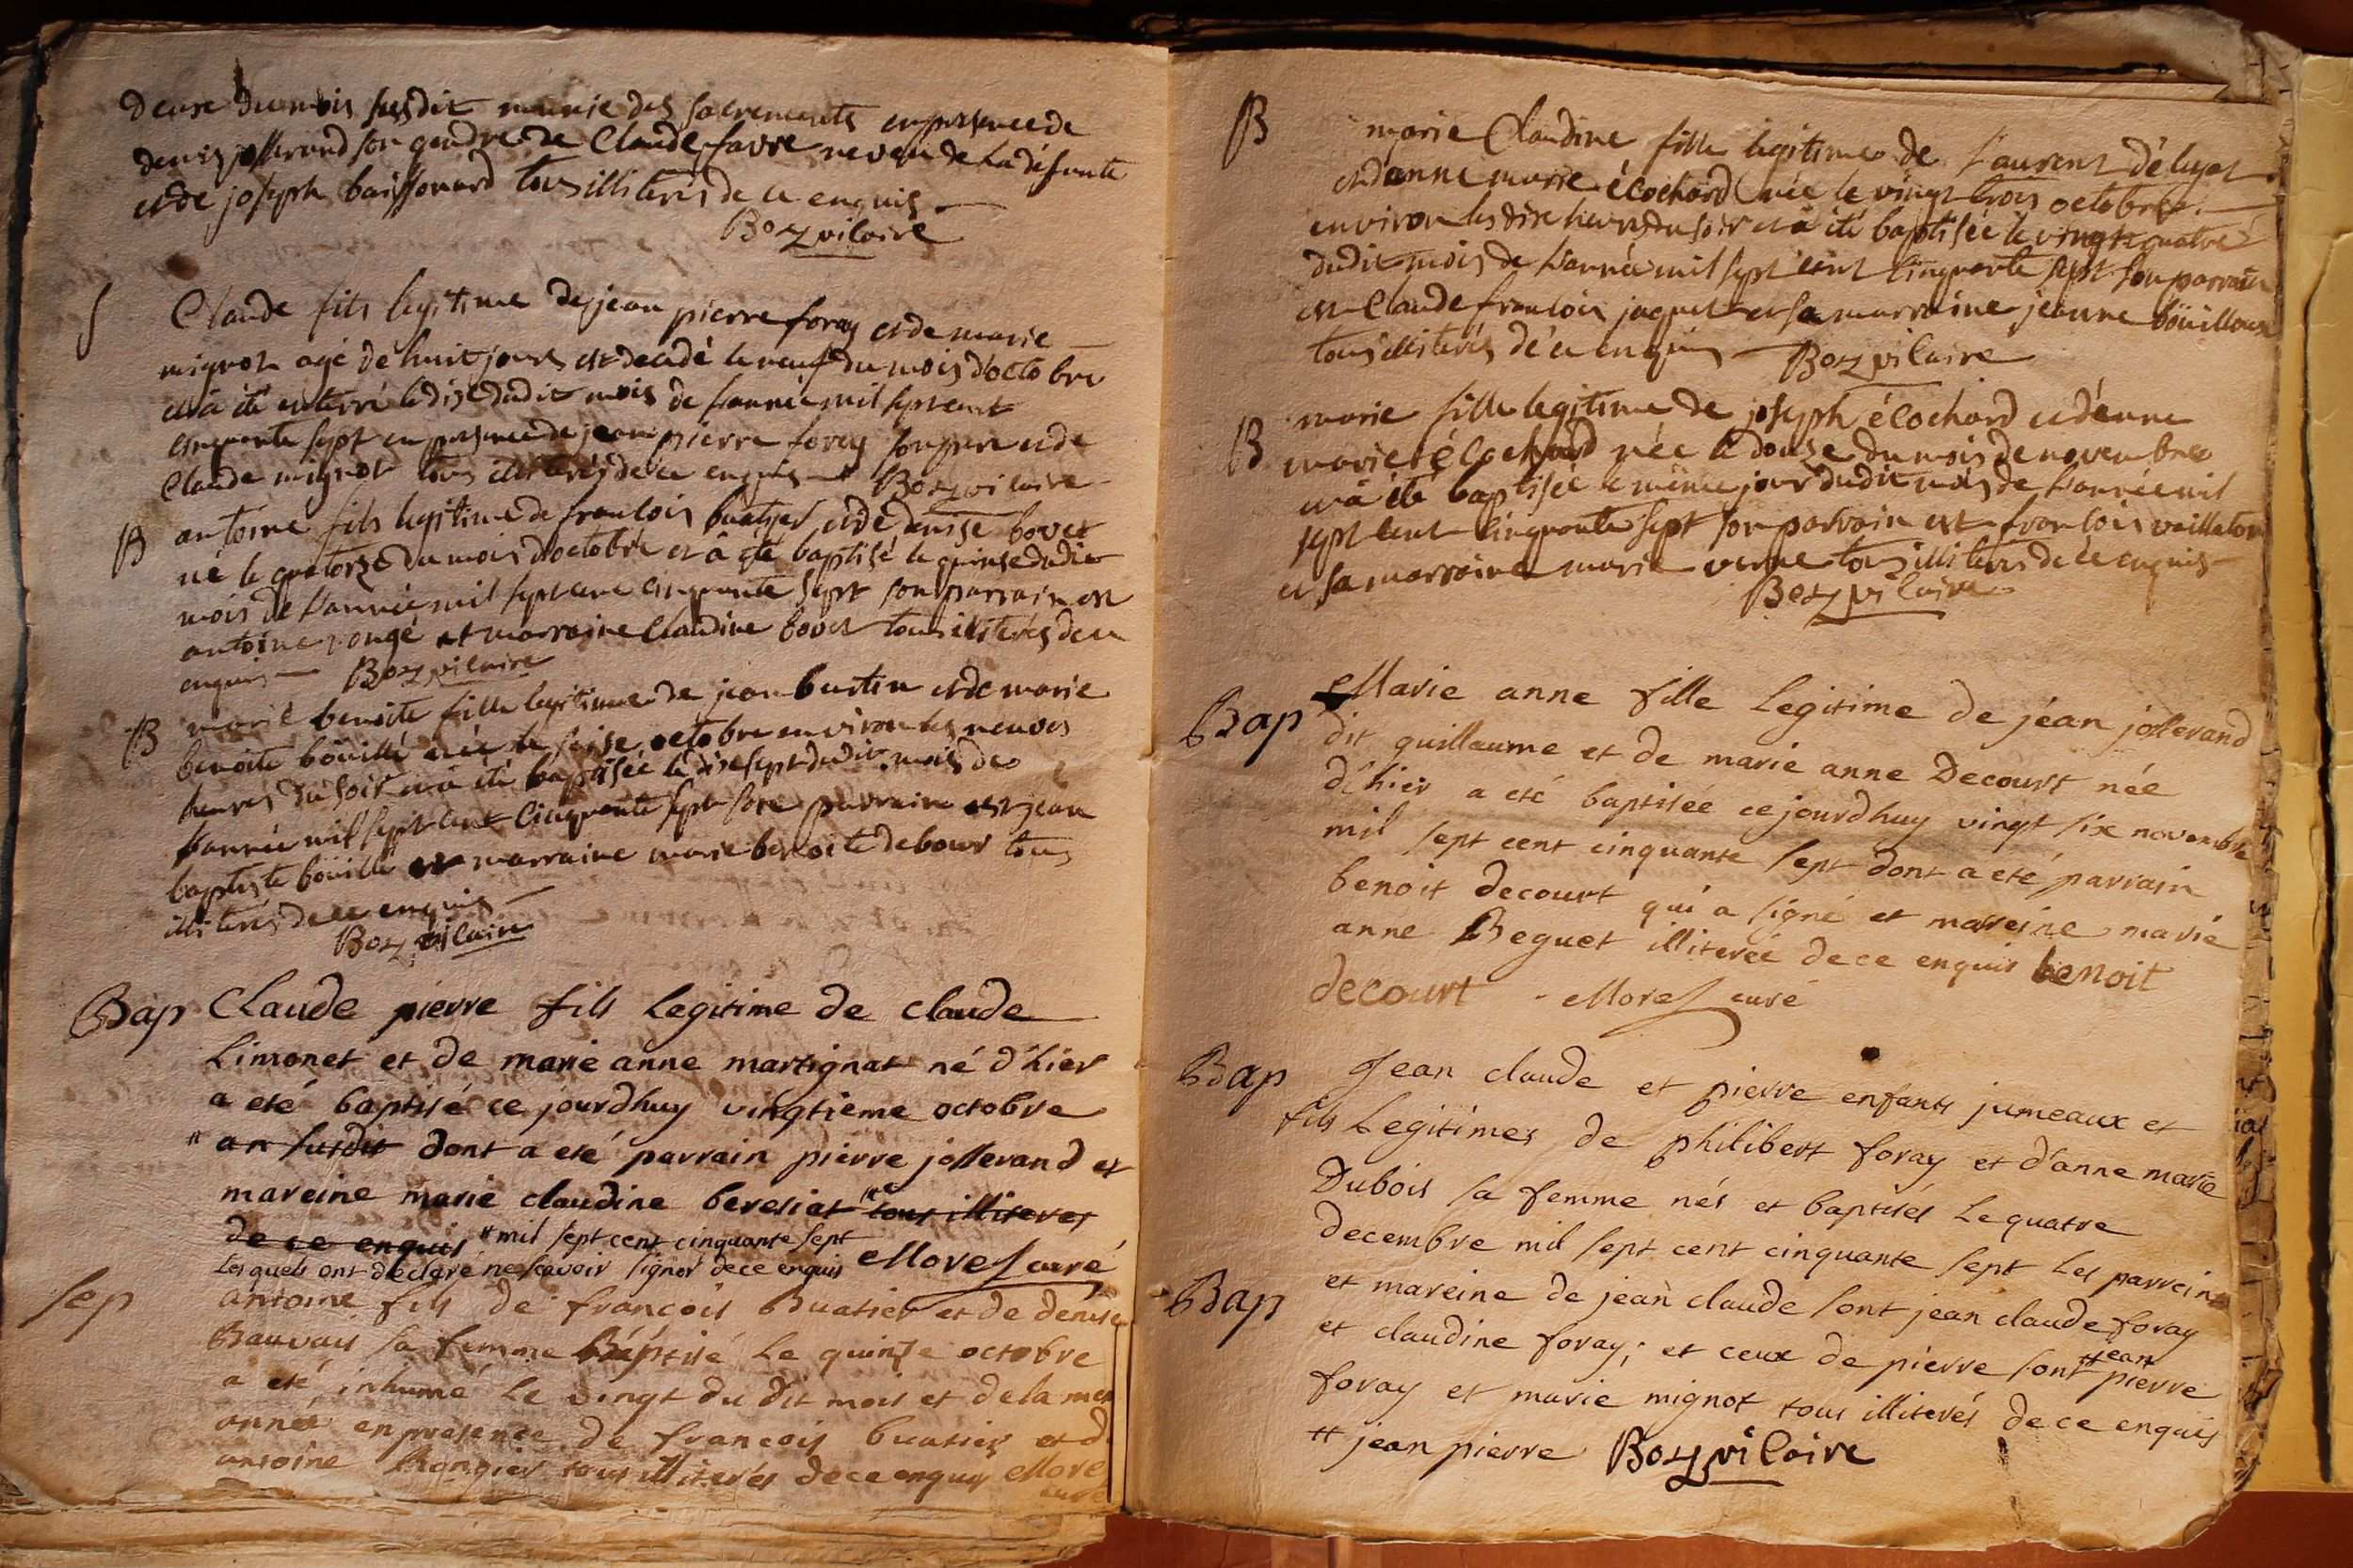 douse du mois susdit munie des sacrements en presence de
denis josserand son gendre de Claude favre neveu de la défunte
et de joseph buissonard tous illiterés de ce enquis
Boy vicaire
S
Claude fils legitime de jean pierre foray et de marie
mignot agé de huit jours est decedé le neuf du mois d'octobre
et â ité enterré le dix dudit mois de l'année mil sept cent
cinquante sept en presence de jean pierre foray son pere et de
Claude mignot tous illiterés de ce enquis Boy vicaire
B antoine fils legitime de francois buatier et de denise bovet
né le quatorze du mois d'octobre et â eté baptisé le quinse dudit
mois de l'année mil sept cent cinquante sept son parrain est
antoine rongé et marraine Claudine bovet tous illiterés de ce
enquis Boy vicaire
B marie benoite fille legitime de jean burtin et de marie
benoite boüillé née le seise octobre environ les neuves
heures du soir et â été baptisée le dixsept dudit mois de
l'année mil sept cent Cinquante sept son parrain est jean
baptiste boüillé et marraine marie benoite debour tous
illiterés de ce enquis
Boy vicaire
Bap Claude pierre fils legitime de claude
Limonet et de marie anne martignat né d'hier
a eté baptisé ce jourdhuy vingtieme octobre
" an susdit dont a eté parrain pierre josserand et
mareine marie claudine bereziat "tous illiteres
de ce enquis "mil sept cent cinquante sept
Lesquels ont declaré ne scavoir signer de ce enquis Morel curé
Sep antoine fils de françois Buatier et de denise
Bauvais sa femme Baptisé Le quinze octobre
a eté inhumé Le vingt du dit mois et de la mem
année en presence de francois buatier et d
antoine Rongier tous illiterés de ce enquis Morel
curé
B marie Claudine fille legitime de Laurent
et d'anne marie écochard née le vingt trois octobre
environ les dix heures du soir et â ité baptisée le vingt quatre
dudit mois de l'année mil sept cent cinquante sept son parrain
est Claude francois jaquet et sa marraine jeanne boüilloux
tous illiterés de ce enquis Boy vicaire
B marie fille legitime de joseph écochard et d'anne
marie écochard née le douse du mois de novembre
et â ité baptisée le même jour dudit mois de l'année mil
sept cent cinquante sept son parrain est francois vaillaton
et sa marraine marie verne tous illiterés de ce enquis
Boy vicaire
Bap Marie anne fille Legitime de jéan josserand
dit guillaume et de marie anne Decourt née
d'hier a eté baptisée ce jourdhuy vingt six novembre
mil sept cent cinquante sept dont a eté parrain
benoit decourt qui a signé et mareine marie
anne Beguet illiterée de ce enquis benoit
decourt - Morel curé
Bap Jean claude et pierre enfants jumeaux et
fils Legitimes de philibert foray et d'anne marie
Dubois sa femme nés et baptisés Le quatre
decembre mil sept cent cinquante sept Les parrein
Bap et mareine de jean claude sont jean claude foray
et claudine foray; et ceux de pierre sont "jean pierre
foray et marie mignot tous illiterés de ce enquis
" jean pierre Boy vicaire